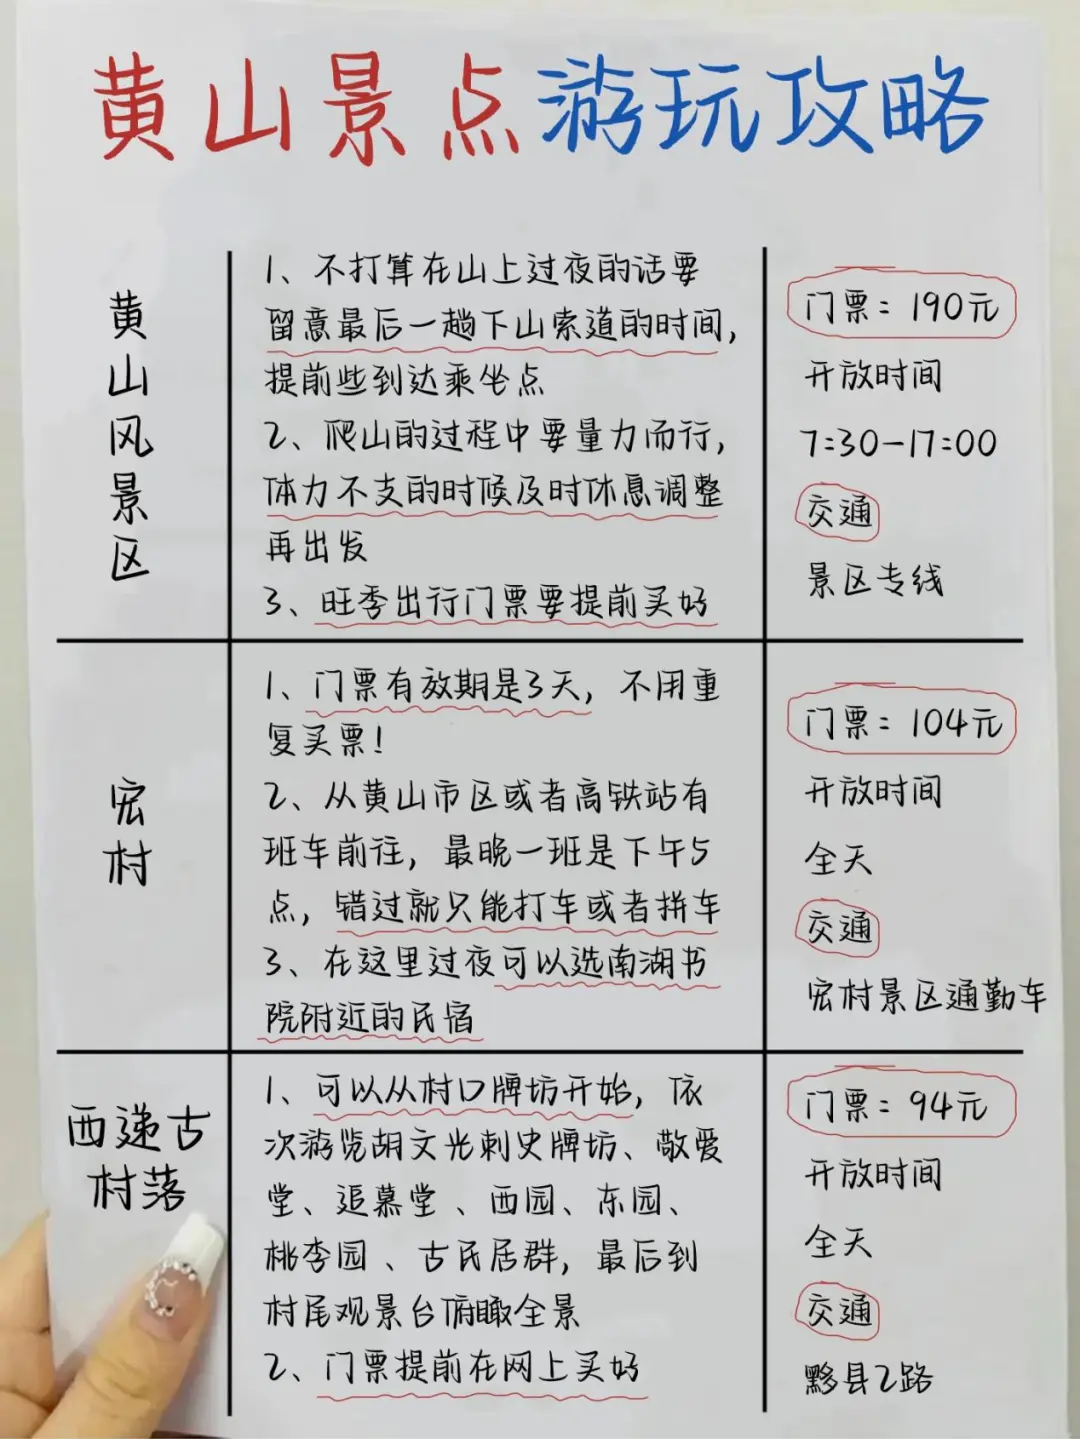 黄山景点游玩攻略
黄山风景区
1、不打算在山上过夜的话要
留意最后一趟下山索道的时间,
提前些到达乘坐点
2、爬山的过程中要量力而行,
体力不支的时候及时休息调整
再出发
3、旺季出行门票要提前买好
门票：190元
开放时间
7:30-17:00
交通
景区专线
宏村
1、门票有效期是3天，不用重
复买票！
2、从黄山市区或者高铁站有
班车前往，最晚一班是下午5
点，错过就只能打车或者拼车
3、在这里过夜可以选南湖书
院附近的民宿
门票：104元
开放时间
全天
交通
宏村景区通勤车
西递古
村落
1、可以从村口牌坊开始，依
次游览胡文光刺史牌坊、敬爱
堂、追慕堂、西园、东园、
桃李园、古民居群，最后到
村尾观景台俯瞰全景
2、门票提前在网上买好
门票：94元
开放时间
全天
交通
黟县2路